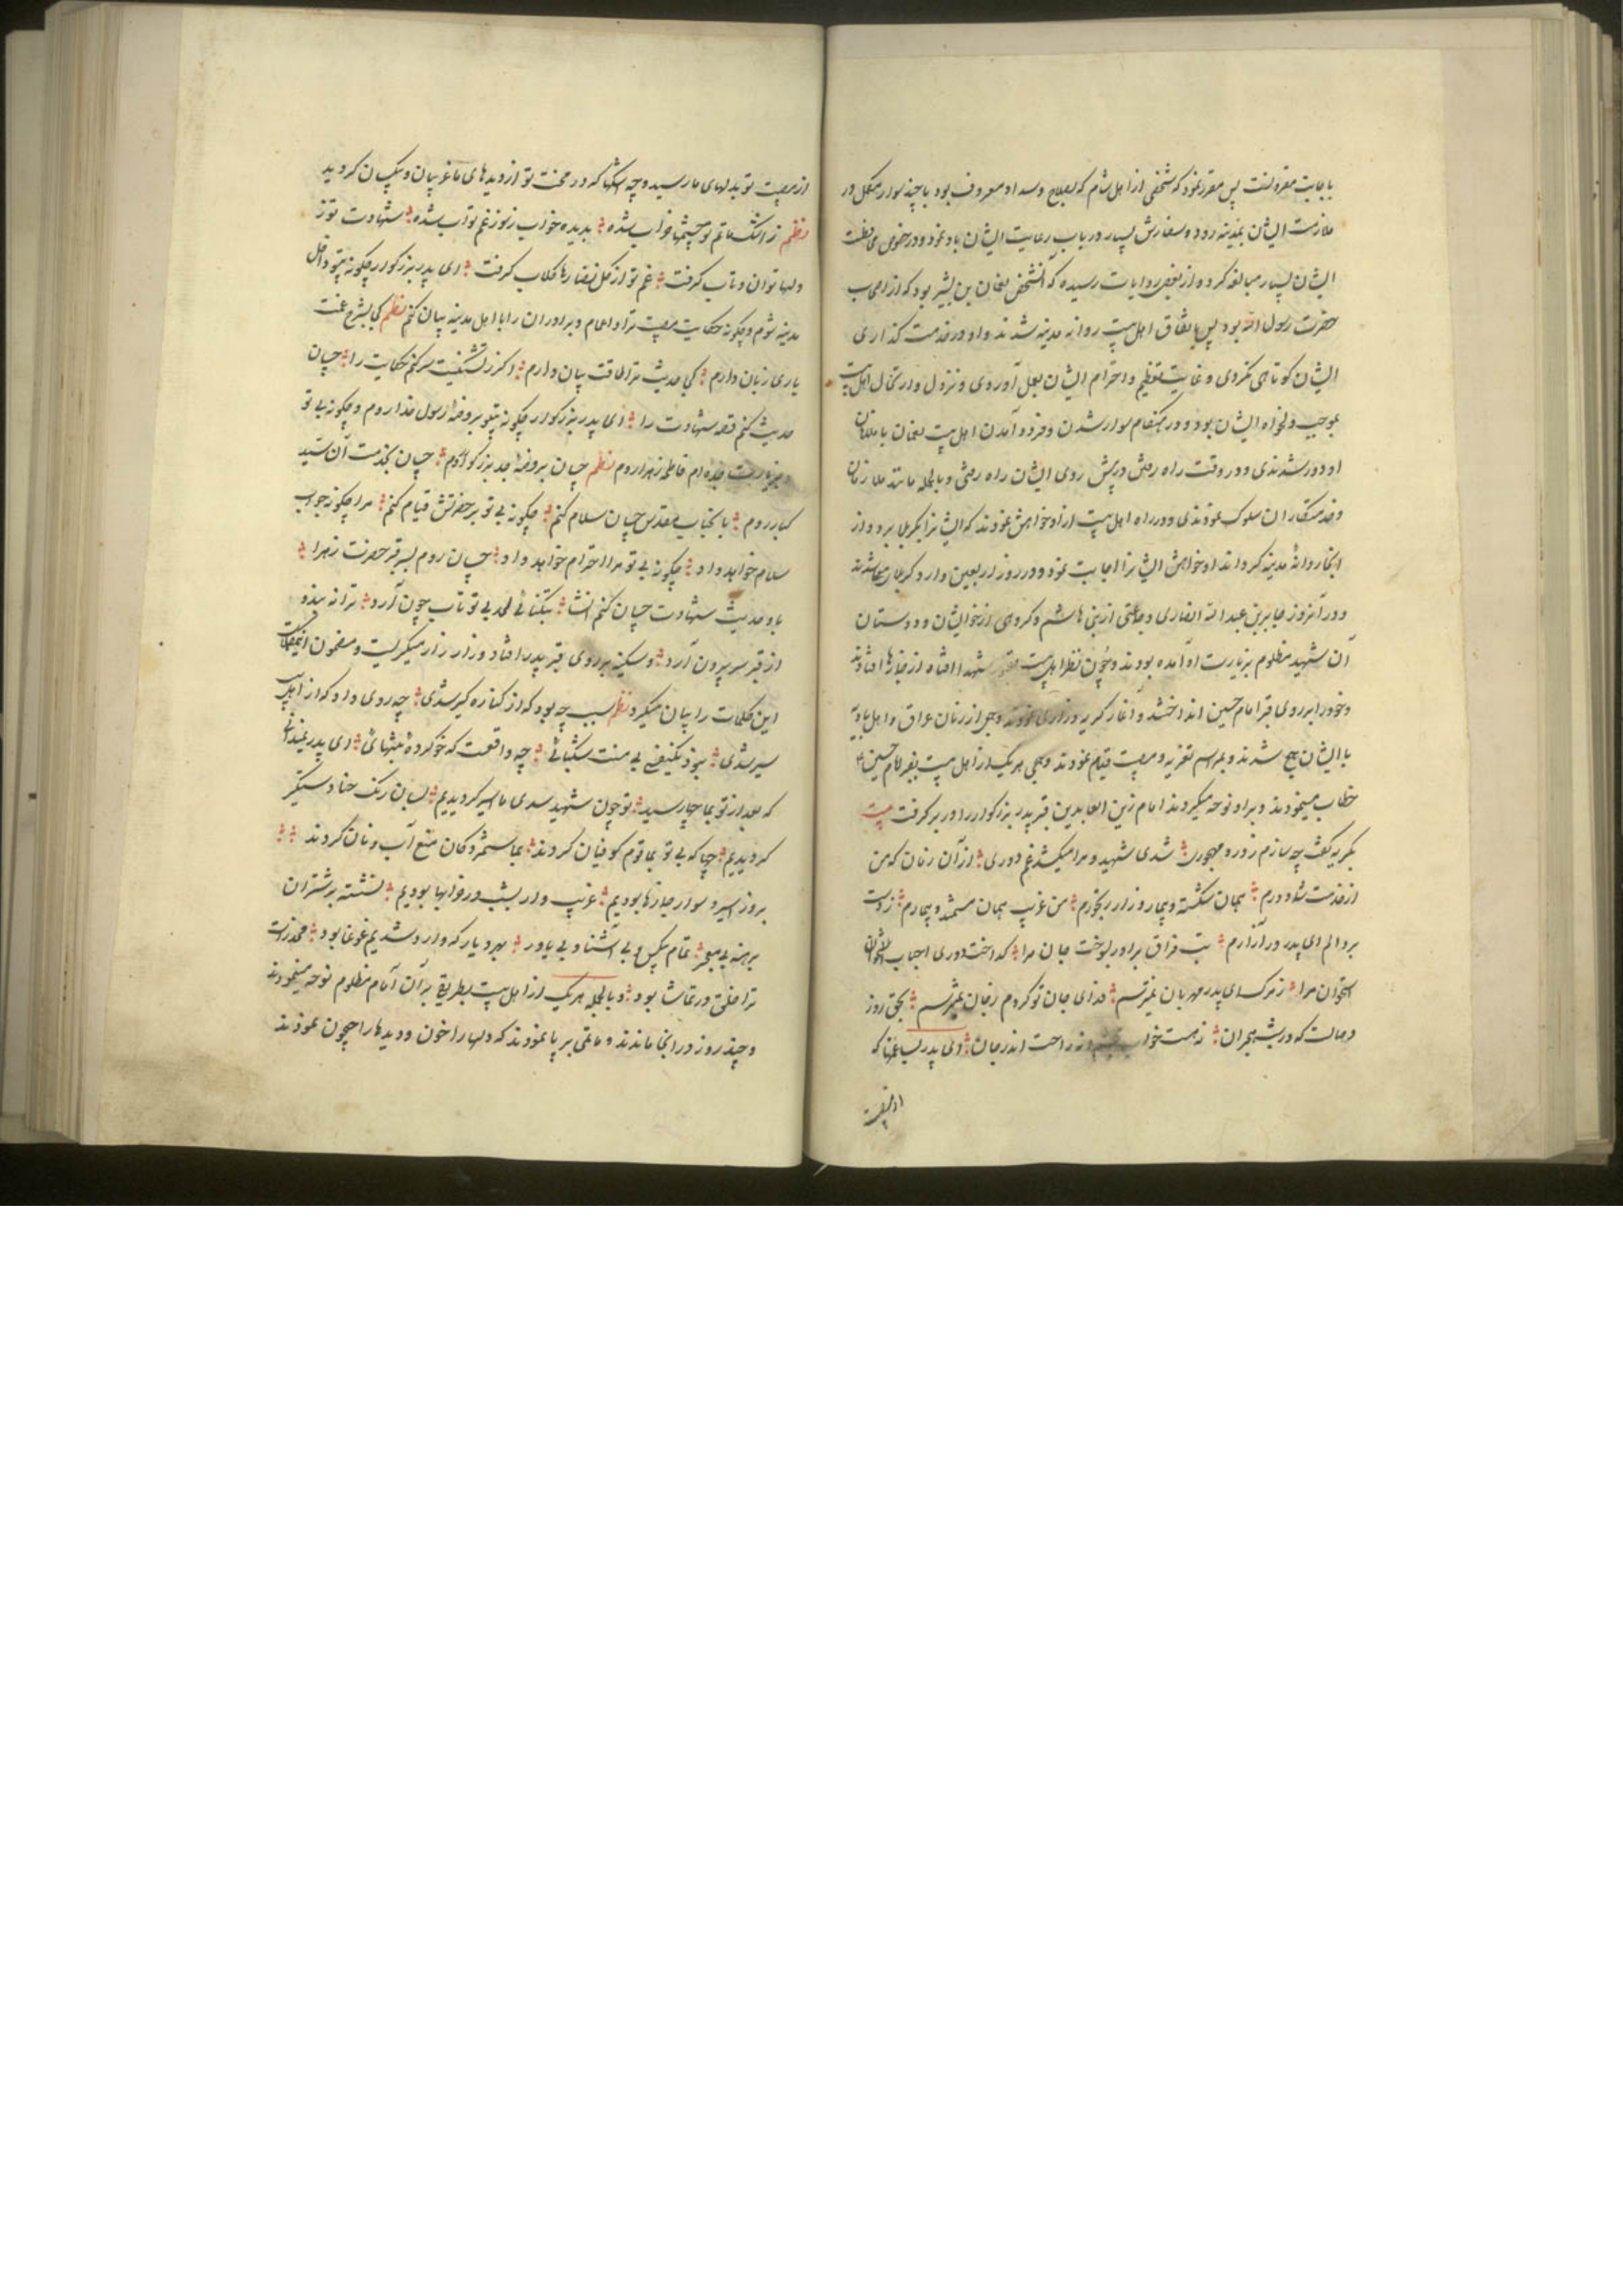 باجابت مقرونست پس مقرر نمود که شخصی از اهل شام که بصلاح و سداد معروف بود با چند سوار مکمل در
ملازمت ایشان بمدینه رود و سفارش بسیار در باب رعایت ایشان باو نمود و در خصوص محافظت
ایشان بسیار مبالغه کرد و از بعضی روایات رسیده که آنشخص نعمان بن بشیر بود که از اصحاب
حضرت رسول الله بود پس باتفاق اهل بیت روانه مدینه شدند و او در خدمت گذاری
ایشان کوتاهی نکردی و غایت تعظیم و احترام ایشان بعمل آوردی و نزول و ارتحال اهل بیت
بموجب دلخواه ایشان بود و در هنگام سوار شدن و فرود آمدن اهل بیت نعمان با ملازمان
او دور شدندی و در وقت راه رفتن در پیش روی ایشان راه رفتی و بالجمله مانند ملازمان
و خدمتکاران سلوک نمودندی و در راه اهل بیت از او خواهش نمودند که ایشانرا بکربلا برد و از
انجا روانهٔ مدینه گرداند او خواهش ایشانرا اجابت نمود و در روز اربعین وارد کربلای معلا شدند
و در آنروز جابر بن عبد الله انصاری و جماعتی از بنی هاشم و گروهی از خویشان و دوستان
آن شهید مظلوم بزیارت او آمده بودند و چون نظر اهل بیت شهدا افتاد از جهازها افتادند
و خود را بر روی قبر امام حسین انداختند و آغاز گریه و زاری نمودند و جمعی از زنان عراق و اهل بادیه
با ایشان جمع شدند و بمراسم تعزیه و مصیبت قیام نمودند و همی هر یک از اهل بیت بقبر امام حسین
خطاب مینمودند و بر او نوحه میکردند امام زین العابدین قبر پدر بزرگوار را در بر گرفت بیت
بگریه گفت چه سازم ز درد مهجوری شدی شهید و مرا میکشد غم دوری از آن زمان که من
از خدمت تو دورم همان شکسته و بیمار و زار و رنجورم من غریب همان مستمند و بیمارم ز دست
برد الم ای پدر در آزارم تب فراق برادر بسوخت جان مرا گداخت دوری احباب
استخوان مرا ز مرگ ای پدر مهربان نمیترسم فدای جان تو کردم ز جان نمیترسم بحق روز
وصالت که در شب هجران نه هست خواب بچشم و نه راحت اندر جان ای پدر بسا غمها که
از مصیبت
از مصیبت تو بدلهای ما رسید و چه اشکها که در محنت تو از دیدهای ما غریبان و بیکسان گردید
نظم ز اشک ماتم تو چشمها خراب شده بدیده خواب ز سوز غم تو آب شده شهادت تو ز
دلها توان و تاب گرفت غم تو از گل رخسارها گلاب گرفت ای پدر بزرگوار چگونه بیتو داخل
مدینه شوم و چگونه حکایت مصیبت ترا و اعمام و برادران را با اهل مدینه بیان کنم نظم کی بشرح غمت
یاری زبان دارم کی حدیث ترا طاقت بیان دارم اگر ز تشنگیت سر کنم حکایت را چسان
حدیث کنم قصه شهادت را ای پدر بزرگوار چگونه بیتو بروضهٔ رسول خدا روم و چگونه بی تو
بزیارت جده ام فاطمه زهرا روم نظم چسان بروضهٔ جد بزرگوار روم چسان بخدمت آن سید
کبار روم با جناب مقدس چسان سلام کنم چگونه بی تو بر حضرتش قیام کنم مرا چگونه جواب
سلام خواهد داد چگونه بی تو مرا احترام خواهد داد چسان روم بسر قبر حضرت زهرا
باو حدیث شهادت چسان کنم انشا به تنگنای لحد بی تو تاب چون آرد ترا نه بیند و
از قبر سر برون آرد و سکینه بر روی قبر پدر افتاد و زار زار میگریست و مضمون
این کلمات را بیان میکرد نظم سبب چه بود که از ما کناره گیر شدی چه روی داد که از اهل بیت
سیر شدی چه واقعست که خو کردهٔ بتنهائی ای پدر نمیدانی
که بعد از تو بما چها رسید تو چون شهید شدی ما اسیر گردیدیم بسان رنک حنا دستگیر
گردیدیم چها که بی تو بما قوم کوفیان کردند بما ستمزدگان منع آب و نان کردند
بروز اسیر و سوار جهازها بودیم غریب وار بشب در خرابها بودیم نشسته بر شتران
برهنه بی معجر تمام بیکس و بی آشنا و بی یاور بهر دیار که وارد شدیم غوغا بود مخدرات
ترا خلق در تماشا بود و بالجمله هر یک از اهل بیت بطریقی بر آن امام مظلوم نوحه مینمودند
و چند روز در انجا ماندند و ماتمی بر پا نمودند که دلها را خون و دیدها را جیحون نمودند